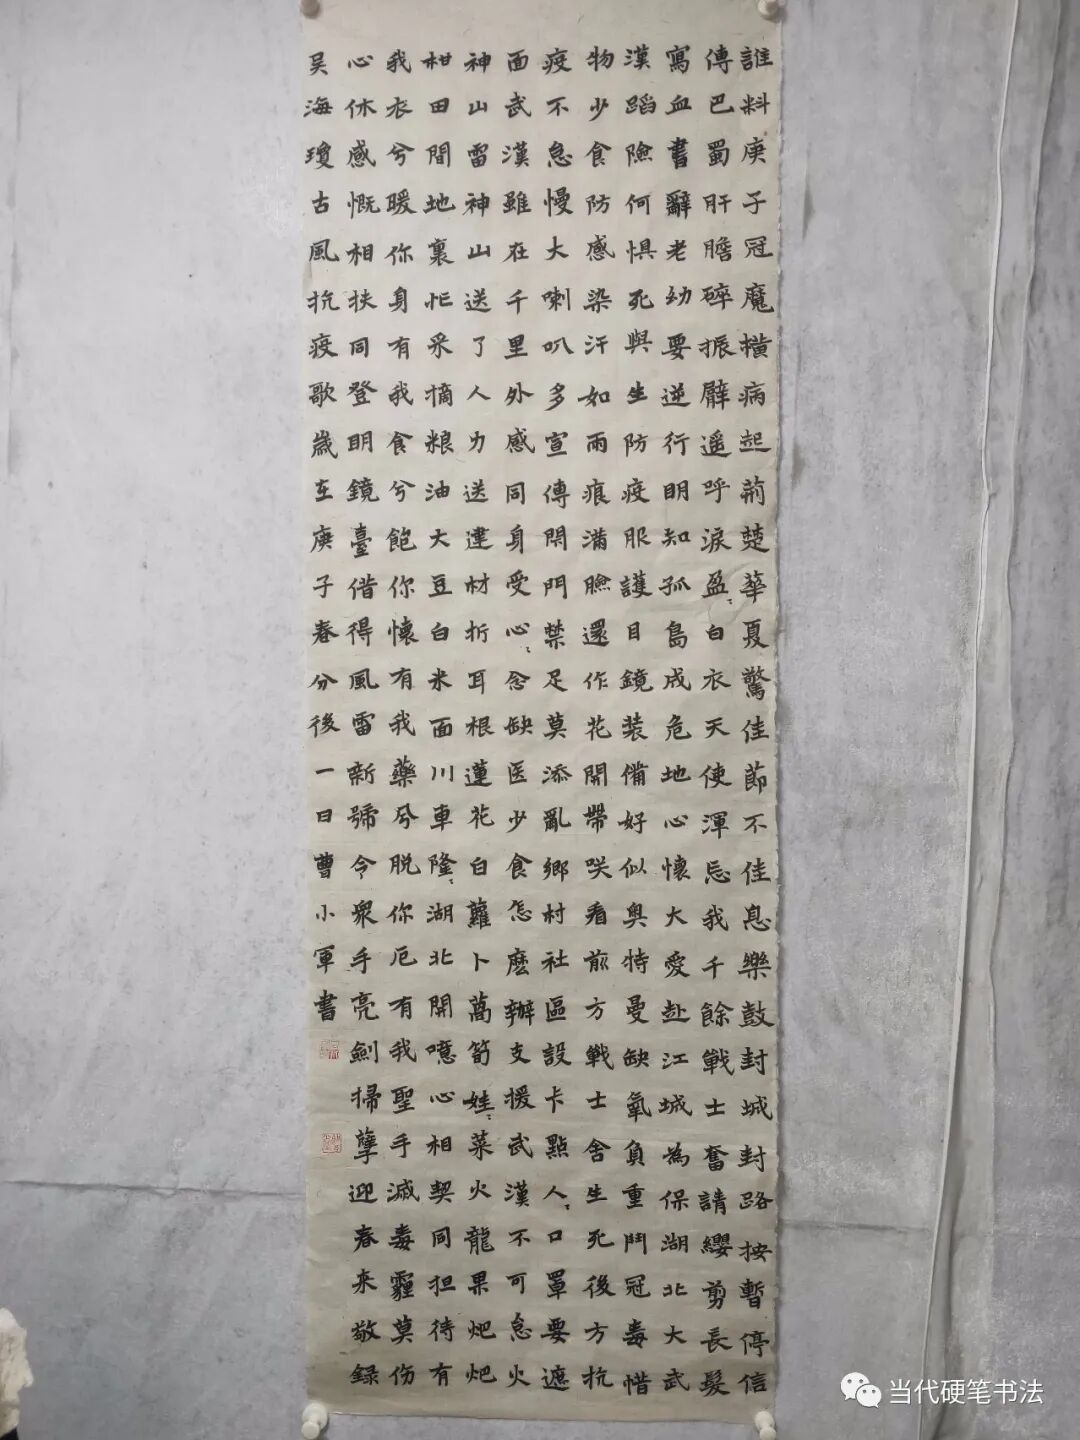 誰料庚子冠魔橫病起荊楚華夏驚佳節不佳息樂鼓封城封路按暫停信
傳巴蜀肝膽碎振臂遥呼淚盈〻白衣天使渾忘我千餘戰士奮請纓剪長髮
寫血書辭老幼要逆行明知孤島成危地心懷大愛赴江城為保湖北大武
漢蹈險何惧死與生防疫服護目鏡装備好似奥特曼缺氧負重鬥冠毒惜
物少食防感染汗如雨痕滿臉還作花開帶咲看前方戰士舍生死後方抗
疫不怠慢大喇叭多宣傳閉門禁足莫添亂鄉村社區設卡點人〻口罩要遮
面武漢雖在千里外感同身受心〻念缺医少食怎麽辦支援武漢不可怠火
神山雷神山送了人力送建材折耳根蓮花白蘿卜萵筍娃〻菜火龍果粑粑
柑田間地裏忙采摘粮油大豆白米面川車隆〻湖北開噫心相契同担待有
我衣兮暖你身有我食兮飽你懷有我藥兮脱你厄有我聖手滅毒霾莫伤
心休感慨相扶同登明鏡臺借得風雷新號令衆手亮劍掃孽迎春来敬録
吴海瓊古風抗疫歌歲在庚子春分後一日曹小軍書
当代硬笔书法